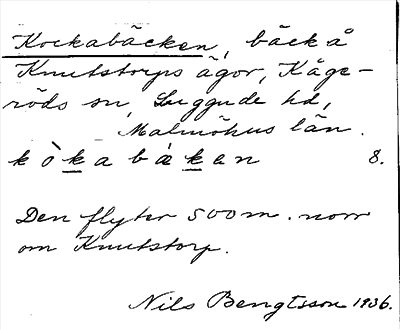 Kockabäcken, bäck å
Knutstorps ägor, Kåge-
röds sn, Luggude hd,
Malmöhus län.
kòkabäken 8.
Den flyter 500 m. norr
om Knutstorp.
Nils Bengtsson 1936.